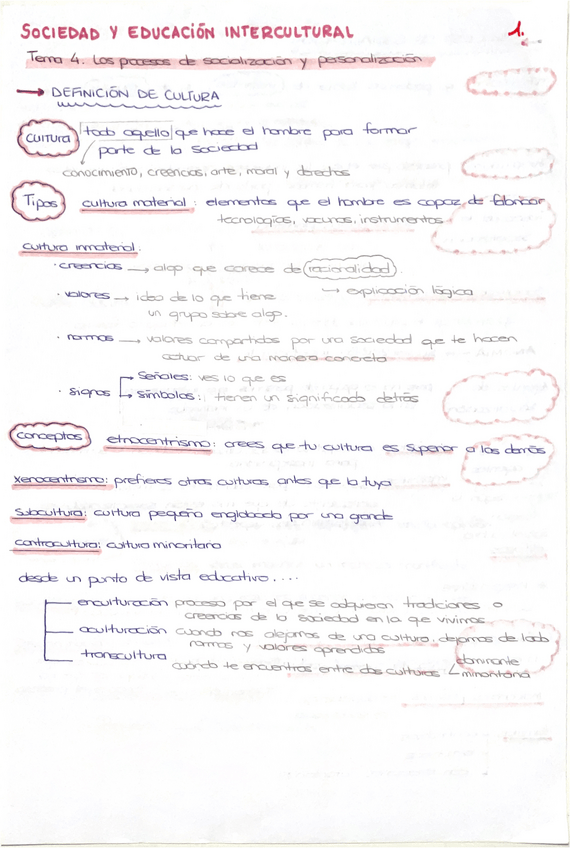 SOCIEDAD Y EDUCACIÓN INTERCULTURAL
1.
Tema 4. Los procesos de socialización y personalización
→ DEFINICIÓN DE CULTURA
Cultura todo aquello que hace el hombre para formar
parte de la sociedad
conocimiento, creencias, arte, moral y derechos
Tipos cultura material: elementos que el hombre es capaz de fabricar
tecnologías, vacunas, instrumentos
cultura inmaterial.
· creencias → algo que carece de racionalidad.
→ explicación lógica
· valores → idea de lo que tiene
un grupo sobre algo.
· normas → valores compartidos por una sociedad que te hacen
actuar de una manera concreta
· signos → Señales: ves lo que es
→ Símbolos: tienen un significado detrás
conceptos etnocentrismo: crees que tu cultura es superior a las demás
xenocentrismo: prefieres otras culturas antes que la tuya
Subcultura: cultura pequeña englobada por una grande
contracultura: cultura minoritaria
desde un punto de vista educativo....
enculturación proceso por el que se adquieren tradiciones o
creencias de la sociedad en la que vivimos
aculturación cuando nos alejamos de una cultura, dejamos de lado
normas y valores aprendidos
transcultura cuando te encuentras entre dos culturas dominante
minoritaria